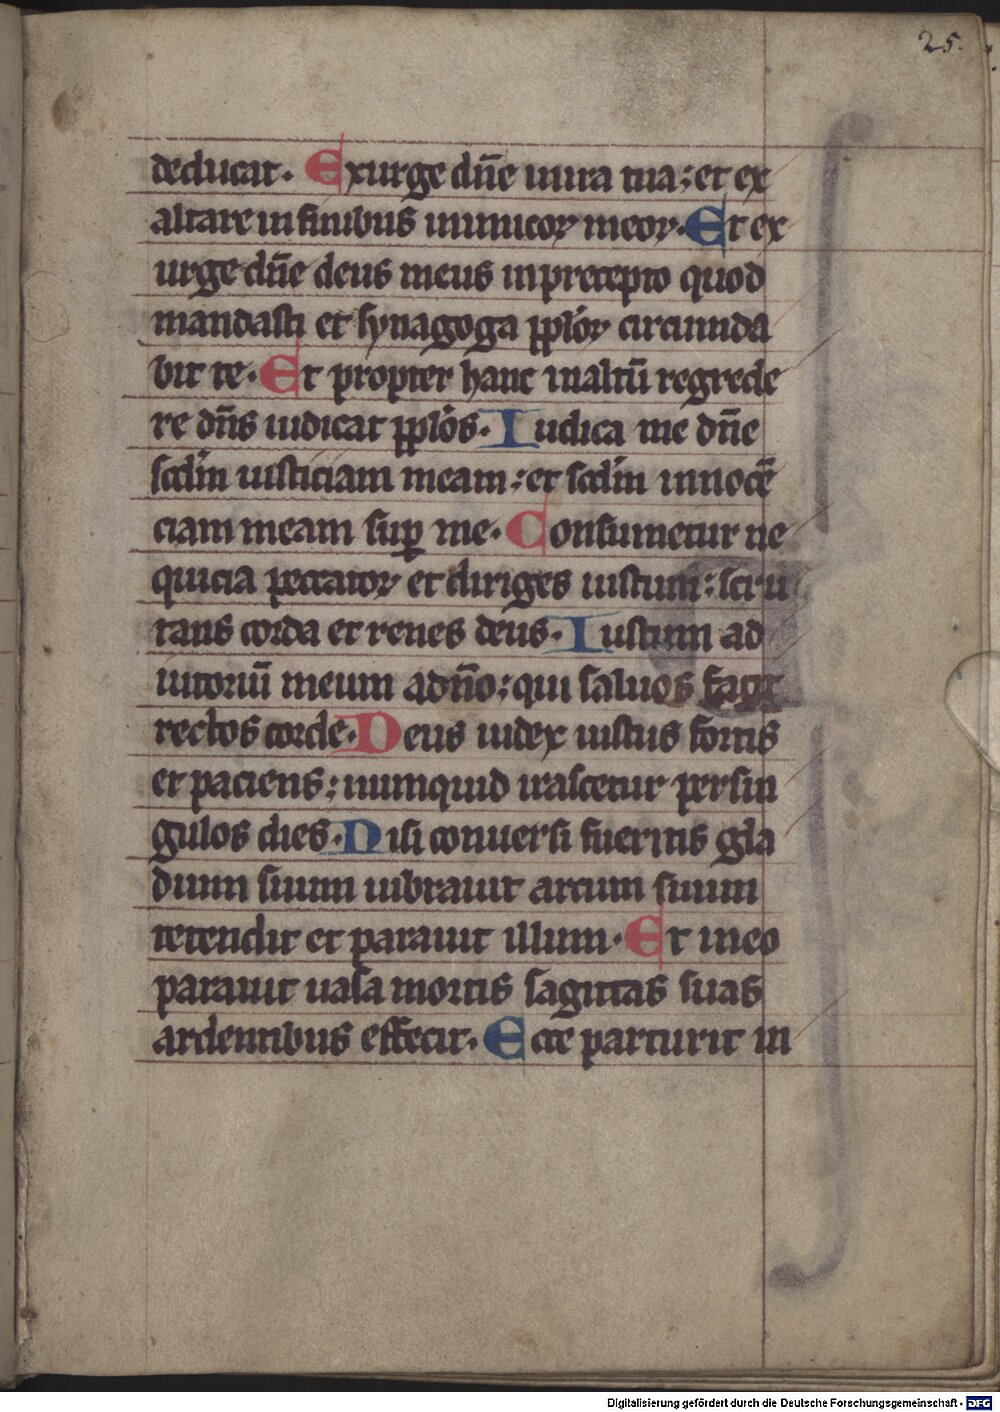 25.
deducat. Exurge dn̄e in ira tua; et ex
altare in finibus inimicoꝝ meoꝝ. Et ex
urge dn̄e deus meus in precepto quod
mandasti et synagoga pploꝝ circumda
bit te. Et propter hanc in altū regrede
re dn̄s iudicat pplos. Iudica me dn̄e
scdm iusticiam meam; et scdm innocē
ciam meam suꝑ me. Consumetur ne
quicia peccatoꝝ et diriges iustum; scru
tans corda et renes deus. Iustum ad
iutoriū meum a dn̄o; qui saluos facit
rectos corde. Deus iudex iustus fortis
et paciens; numquid irascetur per sin
gulos dies. Nisi conuersi fueritis gla
dium suum uibrauit arcum suum
tetendit et parauit illum. Et in eo
parauit uasa mortis sagittas suas
ardentibus effecit. Ecce parturit in
Digitalisierung gefördert durch die Deutsche Forschungsgemeinschaft - DFG